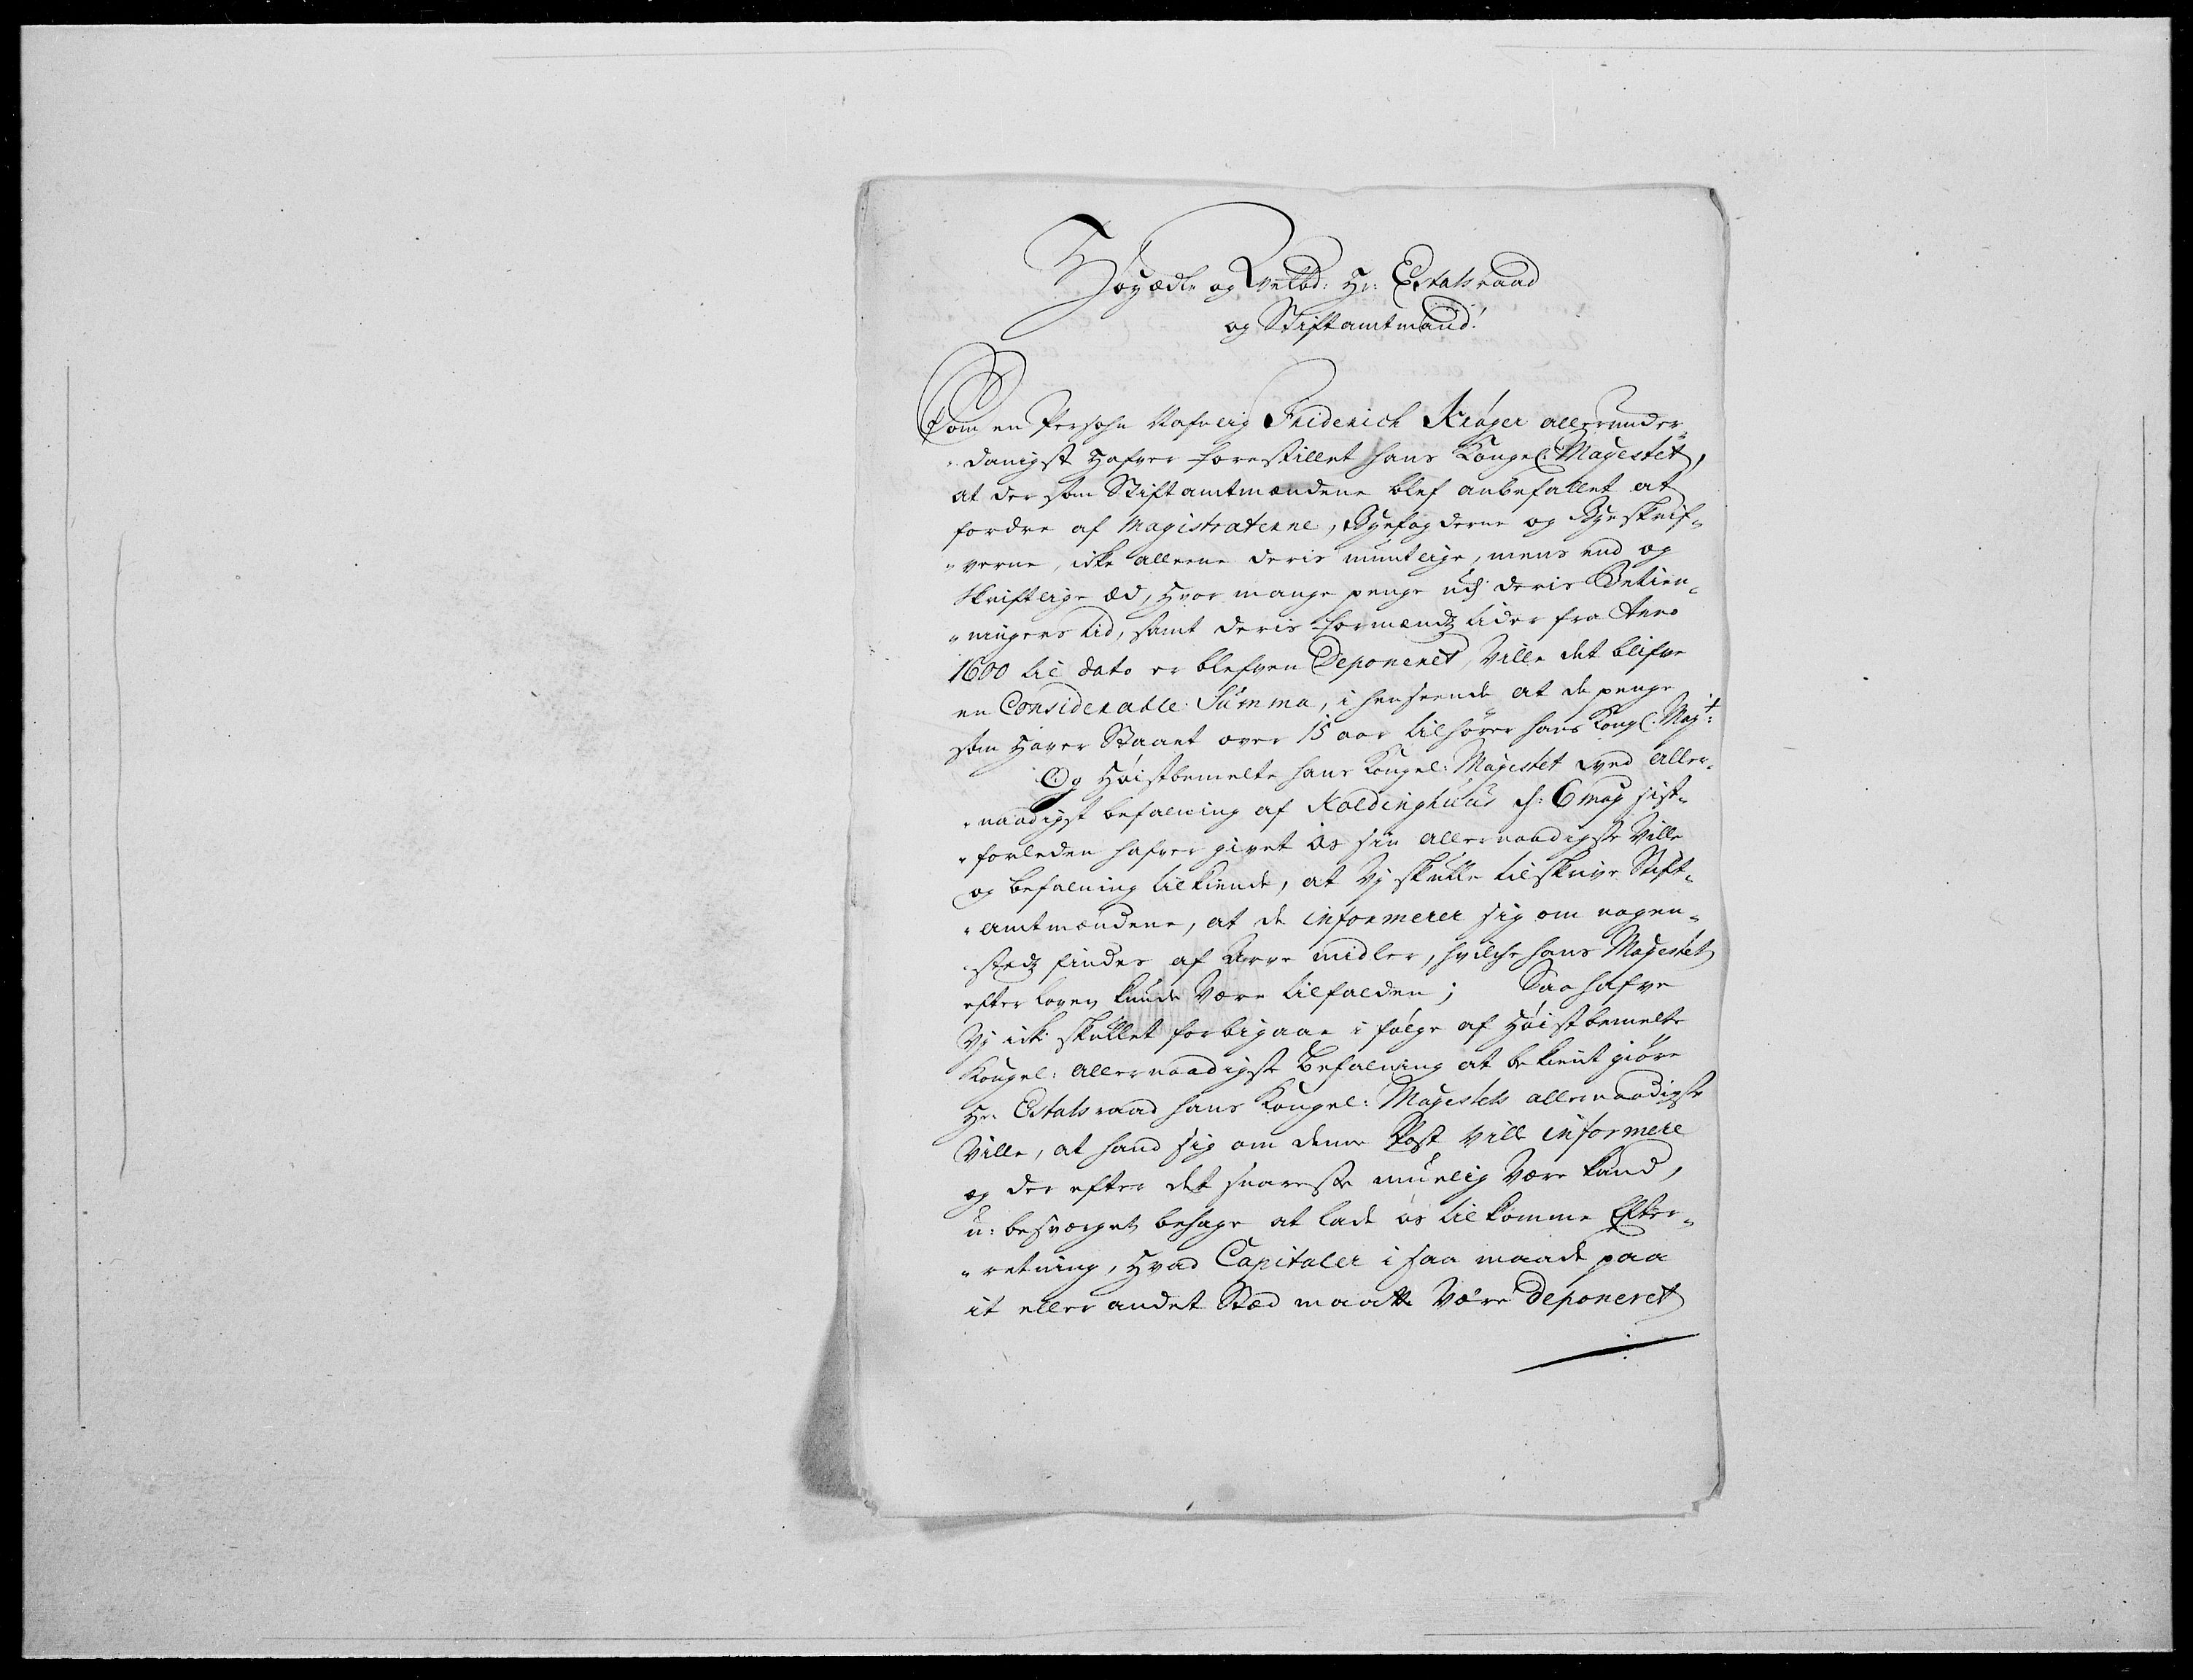 Høyædle og Velbd: Hr: Etatsraad
og Stiftamtmand!
Som en Persohn Nafnlig Friderich Krøger allerunder„
„danigst Hafver forestillet hans Kongel: Mayestet,
at der som Stiftamtmændene blef anbefallet at
fordre af Magistraterne, Byefogderne og Byeskrif„
„verne, icke alleene deris mundtlige, mens end og
skriftlige æd, Hvor mange penge udj deris Betien„
„ningers tid, samt deris formændz tider fra Anno
1600 til dato er blefven Deponeret, Ville det blifve
en Considerable Summa, i henseende at de penge
som Haver Staaet over 15 aar tilhører hans Kongl: Mayt:
Og Høistbemelte hans Kongel: Mayestet ved Aller„
„naadigst befalning af Koldinghuus d: 6 may sist„
„forleden hafver givet os sin allernaadigste Ville
og befalning tilkiende, at Vj skulle tilskrive Stift„
„amtmændene, at de informerer sig om nogen„
stedz findes af Arve midler, hvilche hans Mayestet
efter loven kunde Være tilfalden; Saa hafve
Vj ick skullet forbigaae i følge af Høistbemelte
Kongel: allernaadigste Befalning at bekient giøre
Hr. Etatsraad hans Kongel: Mayestets allernaadigste
Ville, at hand sig om denne Post Ville informere
og der efter det snareste muelig Være kand,
u: besværget behage at lade os tilkomme Efter„
„retning, Hvad Capitaler i saa maade paa
it eller andet Stæd maatte Være Deponeret